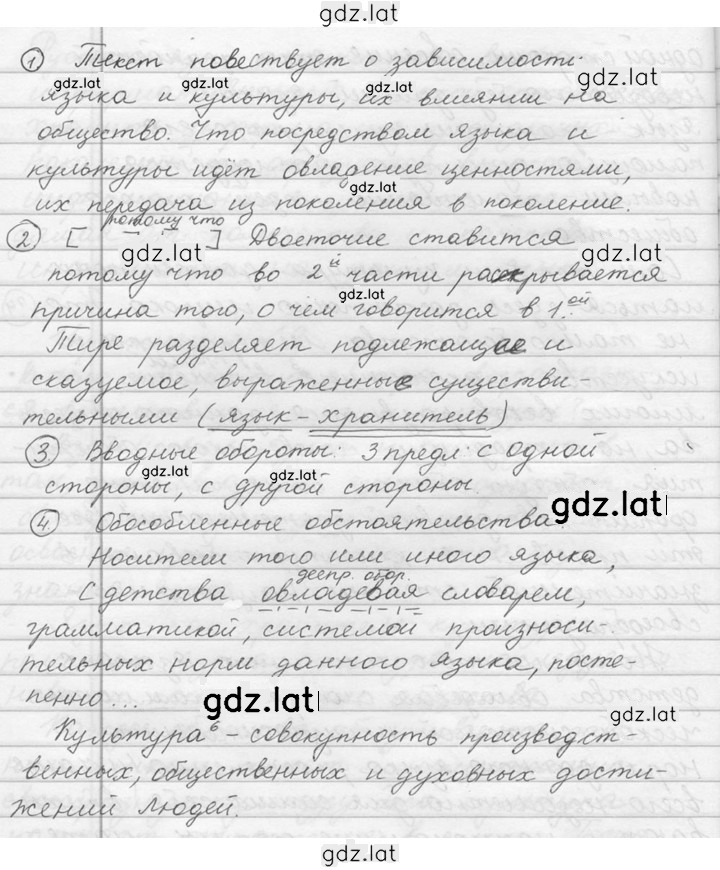 gdz.lat
① Текст повествует о зависимости
gdz.lat gdz.lat gdz.lat
языка и культуры, их влиянии на
общество. Что посредством языка и
культуры идёт овладение ценностями,
gdz.lat gdz.lat
их передача из поколения в поколение.
потому что
② [ ] Двоеточие ставится
gdz.lat gdz.lat
потому что во 2й части раскрывается
gdz.lat
причина того, о чём говорится в 1.ой
Тире разделяет подлежащее и
сказуемое, выраженные существи-
тельными (язык – хранитель)
③ Вводные обороты: 3 предл: с одной
gdz.lat gdz.lat
стороны, с другой стороны.
gdz.lat
④ Обособленные обстоятельства:
Носители того или иного языка,
деепр. обор.
с детства овладевая словарем,
грамматикой, системой произноси-
тельных норм данного языка, посте-
пенно...
gdz.lat gdz.lat
Культура6 – совокупность производст-
венных, общественных и духовных дости-
жений людей.
gdz.lat